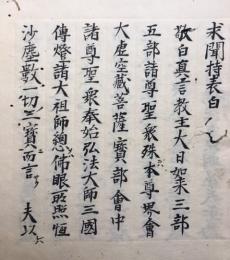 求聞持表白
敬白真言教主大日如来三部
五部諸尊聖衆殊本尊界會
大虚空藏菩薩寶部會中
諸尊聖衆奉始弘法大師三國
傳燈諸大祖師惣佛眼所照恒
沙塵數一切三寳而言 夫以